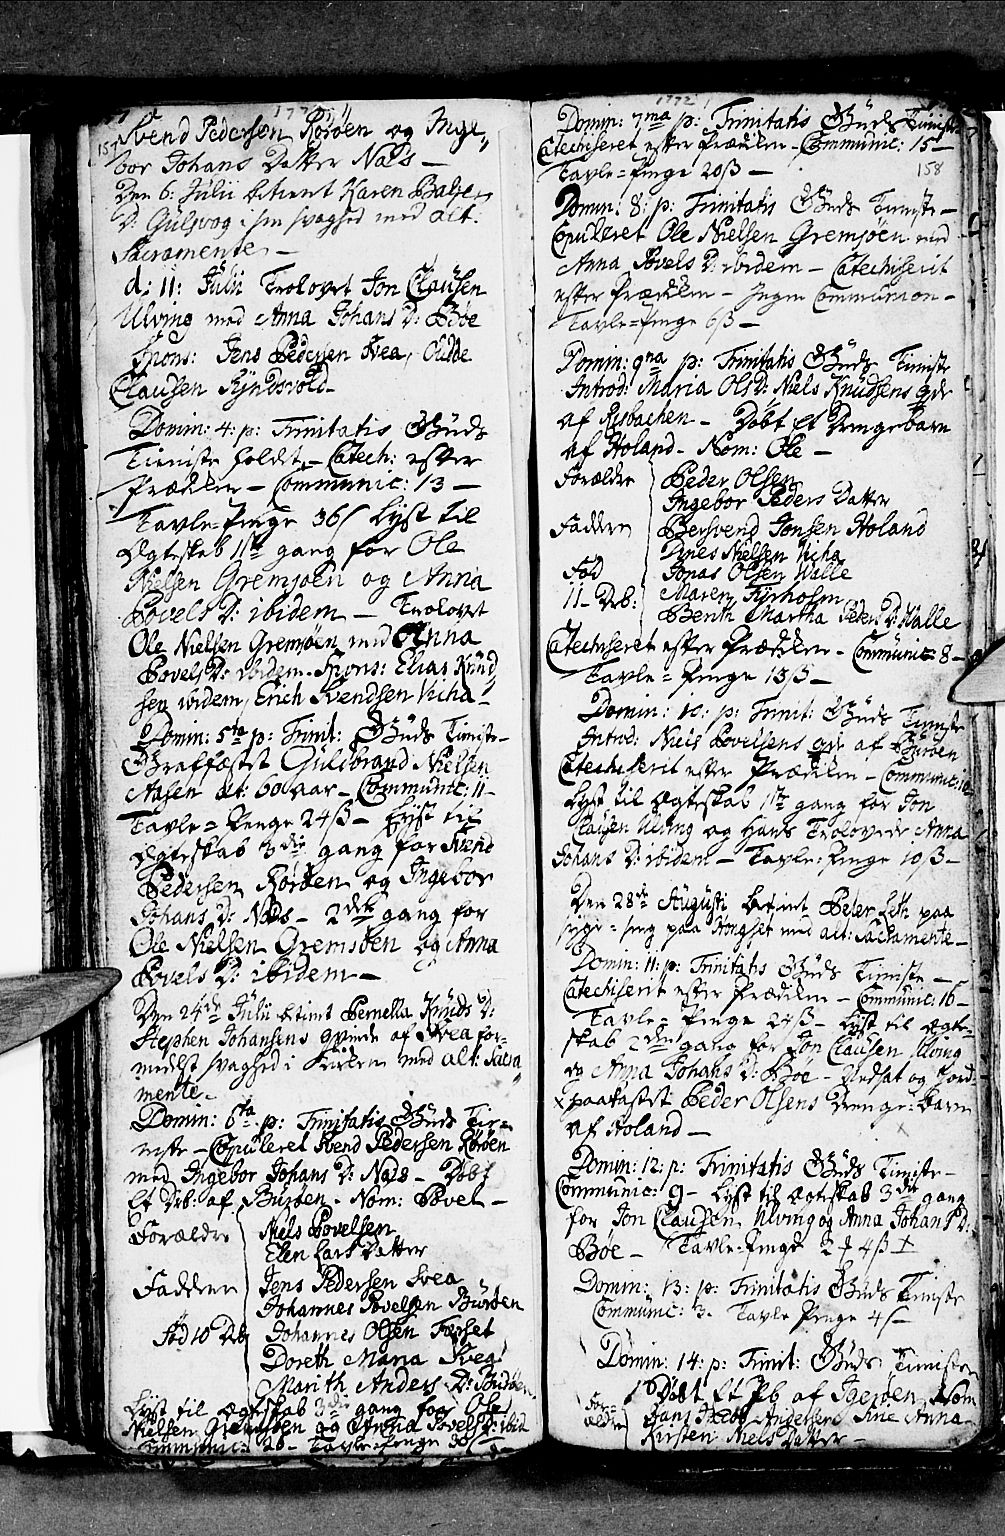 157
1772
Svend Pedersen Röröen og Inge-
bor Johans Datter Nads —
Den 6: Julii betient Karen Balzers
D: Gulsvog i sin svaghed med alt:
Sacramente —
d: 11: Julii Trolovet Jon Clausen
Ulving med Anna Johans D: Böe
Spons: Jens Pedersen Svea,
Clausen
Domin: 4: p: Trinitatis Guds
Tieniste holdt — Catech: efter
Prædiken — Communic: 13 —
Tavle-Penge 36 ſ Lyst til
Ægteskab 1te gang for Ole
Nielsen Gremsöen og Anna
Povels D: ibidem — Trolovet
Ole Nielsen Gremsöen med Anna
Povels D: ibidem. Spons: Elias Knud-
sen ibidem, Erich Svendsen Vicha —
Domin: 5ta p: Trinit: Guds Tieniste —
Graffæstet Guldbrand Nielsen
Aasen alt: 60 aar — Communic: 11 —
Tavle-Penge 24 ß — Lyst til
Ægteskab 3die gang for Svend
Pedersen Röröen og Ingebor
Johans D: Nads — 2den gang for
Ole Nielsen Gremsöen og Anna
Povels D: ibidem —
Den 24de Julii betient Pernella Knuds D:
Stephen Johansens qvinde af Svea for-
medelst svaghed i Kirken med alt: Sacra-
mente —
Domin: 6ta p: Trinitatis Guds Tie-
niste — Copuleret Svend Pedersen Röröen
med Ingebor Johans D: Nads — Döbt
Et Drb: af Buröen — Nom: Povel —
Forældre Niels Povelsen
Elen Lars Datter
Faddere Jens Pedersen Svea
Johannes Povelsen Buröen
Fød 10 Dl Johannes Olsen Færset
Doreth Maria Svea
Marith Anders D: Buröen
Lyst til Ægteskab 3die gang for Ole
Nielsen Gremsöen og Anna Povels D: ibid
Communic: 26 — Tavle-Penge 30 ſ —
1772
158
Domin: 7ma p: Trinitatis Guds Tieniste
Catechiseret efter Prædiken — Communic: 15 —
Tavle-Penge 20 ß —
Domin: 8: p: Trinitatis Guds Tieniste —
Copuleret Ole Nielsen Gremsöen med
Anna Povels D: ibidem — Catechiserit
efter Prædiken — Ingen Communion —
Tavle-Penge 6 ß —
Domin: 9na p: Trinitatis Guds Tieniste
Introd: Maria Ols D: Niels Knudsens qde
af Risbachen — Döbt Et Drengebarn
af Holand — Nom: Ole —
Forældre Peder Olsen
Ingebor Peders Datter
Faddere Bersvend Jonsen Holand
Nielsen Vicha
Fød Jonas Olsen Walle
11 Maren Fyrholm
Berith Martha Peders D: Walle
Catechiseret efter Prædiken — Communic: 8 —
Tavle-Penge 13 ß —
Domin: 10: p: Trinit: Guds Tieniste
Introd: Niels Povelsens qde af Buröen
Catechiserit efter Prædiken — Communic: 12
Lyst til Ægteskab 1te gang for Jon
Clausen Ulving og Hans Trolovede Anna
Johans D: ibidem — Tavle-Penge 10 ß —
Den 28de Augusti betient Peter Leth paa
syge-seng paa Hongset med alt: Sacramente —
Domin: 11: p: Trinitatis Guds Tieniste —
Catechiserit efter Prædiken — Communic: 16 —
Tavle-Penge 24 ß — Lyst til Ægte-
skab 2den gang for Jon Clausen Ulving
og Anna Johans D: Böe — Nedsat og Jord-
paakastet Peder Olsens Drenge-barn
af Holand —
Domin: 12: p: Trinitatis Guds Tieniste —
Communic: 9 — Lyst til Ægteskab 3die gang
for Jon Clausen Ulving og Anna Johans D:
Böe — Tavle-Penge 2 # 4 ß
Domin: 13: p: Trinitatis Guds Tieniste
Communic: 3. Tavle Penge 4 ſ —
Domin: 14: p: Trinit: Guds Tieniste
Döbt Et Pb af Igeröen, Nom
For- Hans
ældre Kirsten Niels Datter —